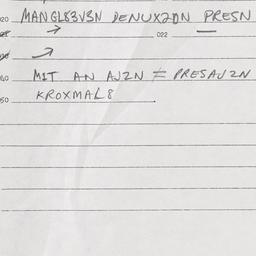 020 MANGL83V3N DENUX2DN PRESN
022
MIT AN AJ2N = PRESAJ2N
KROXMAL8